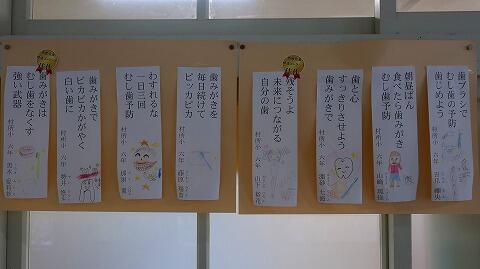 歯ブラシで
むし歯の予防
歯じめよう
村所小 六年
朝昼ばん
食べたら歯みがき
むし歯予防
村所小 六年 山崎
歯と心
すっきりさせよう
歯みがきで
村所小 六年
残そうよ
未来につながる
自分の歯
村所小 六年 山下
歯みがきを
毎日続けて
ピッカピカ
村所小 六年
わすれるな
一日三回
むし歯予防
村所小 六年
歯みがきで
ピカピカかがやく
白い歯に
村所小 六年
歯みがきは
むし歯をなくす
強い武器
村所小 六年 黒木